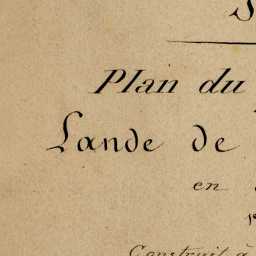 Plan du
Lande de
en
Construit à